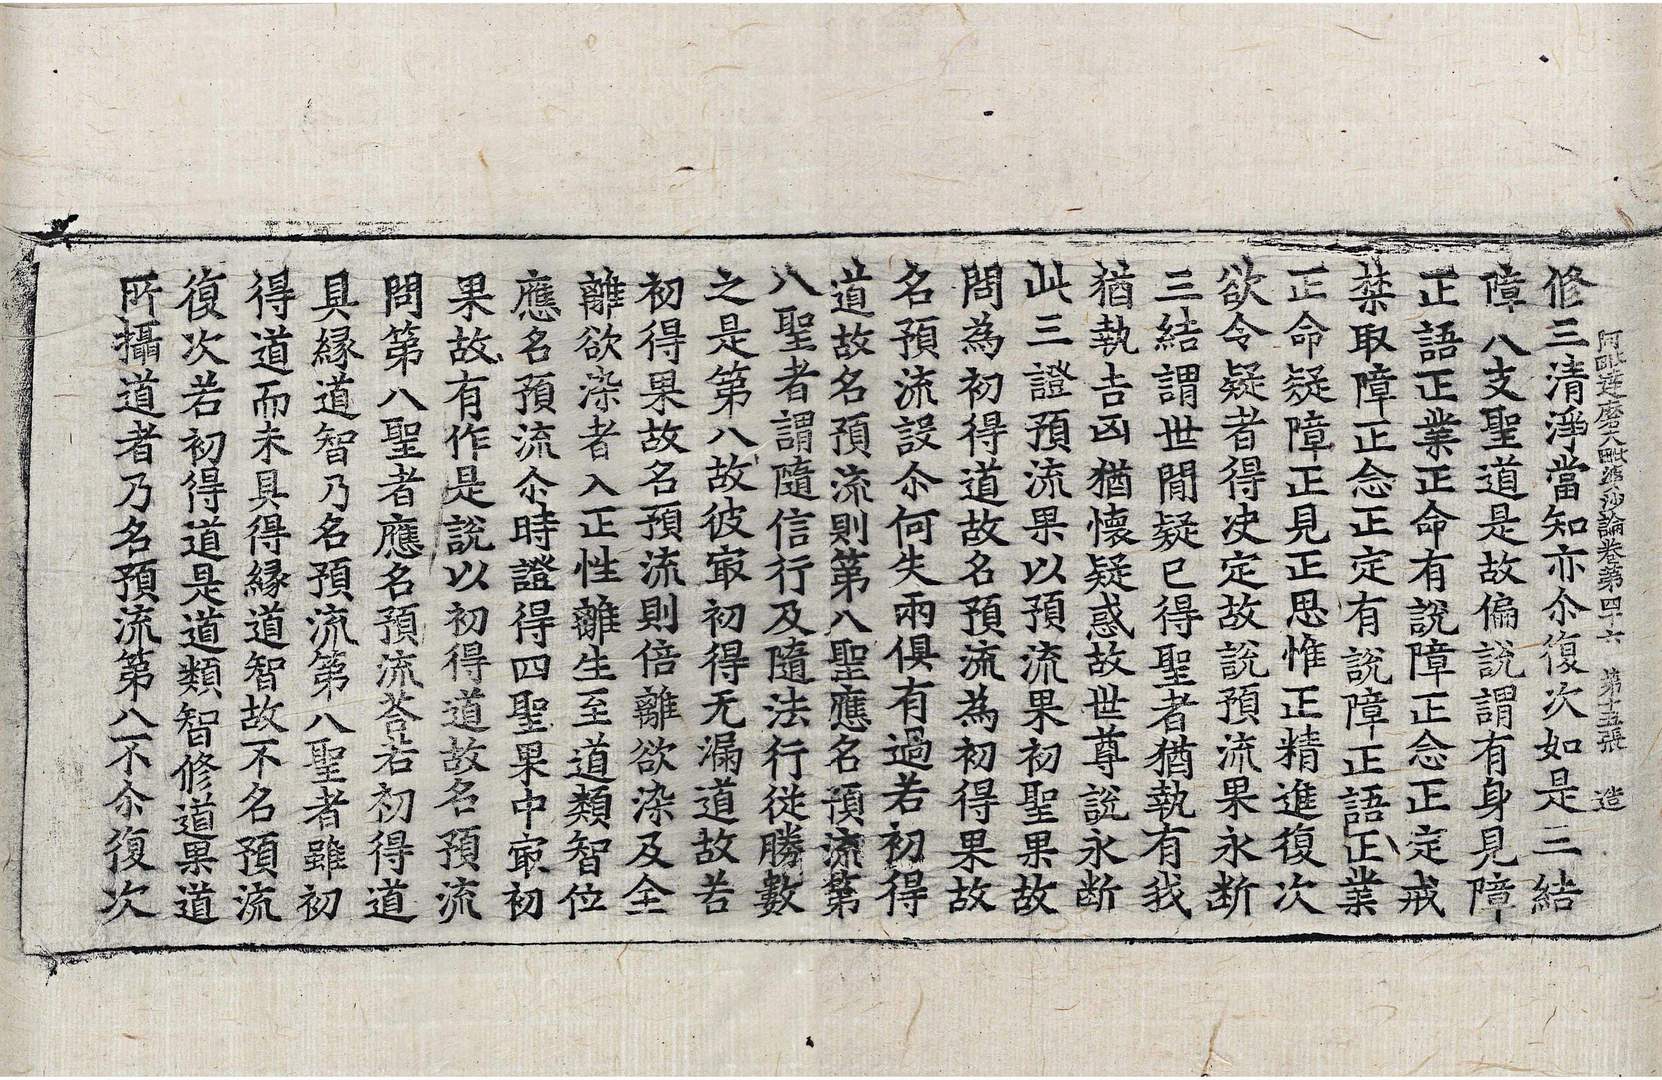 阿毗達磨大毗婆沙論卷第四十六　第十五張　造
修三清淨當知亦尒復次如是三結
障八支聖道是故偏說謂有身見障
正語正業正命有說障正念正定戒
禁取障正念正定有說障正語正業
正命疑障正見正思惟正精進復次
欲令疑者得决定故說預流果永断
三結謂世間疑已得聖者猶執有我
猶執吉凶猶懷疑惑故世尊說永断
此三證預流果以預流果初聖果故
問為初得道故名預流為初得果故
名預流設尒何失兩俱有過若初得
道故名預流則第八聖應名預流第
八聖者謂隨信行及隨法行從勝數
之是第八故彼㝡初得无漏道故若
初得果故名預流則倍離欲染及全
離欲染者入正性離生至道類智位
應名預流尒時證得四聖果中㝡初
果故有作是說以初得道故名預流
問第八聖者應名預流荅若初得道
具緣道智乃名預流第八聖者雖初
得道而未具得緣道智故不名預流
復次若初得道是道類智修道果道
所攝道者乃名預流第八不尒復次